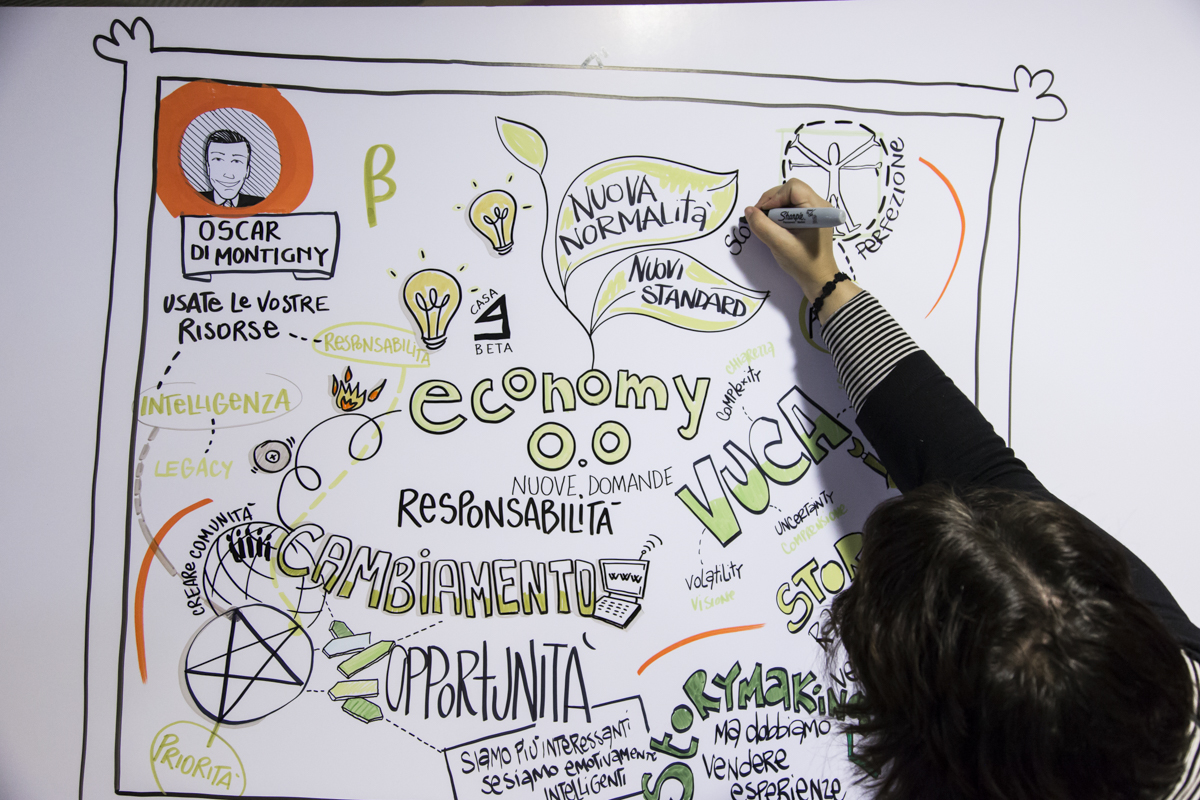 OSCAR
DI MONTIGNY
β
NUOVA
NORMALItà
NUOVI
STANDARD
PERFEZIONE
Sharpie
USATE LE VOSTRE
RISORSE
RESPONSABILITÀ
CASA
BETA
INTELLIGENZA
LEGACY
economy
0.0
NUOVE DOMANDE
RESPONSABILITÀ
CHIAREZZA
COMPLEXITY
VUCA
UNCERTAINTY
COMPRENSIONE
VOLATILITY
VISIONE
CREARE COMUNITÀ
CAMBIAMENTO
WWW
OPPORTUNITÀ
PRIORITÀ
SIAMO PIÙ INTERESSANTI
SE SIAMO EMOTIVAMENTE
INTELLIGENTI
MA dobbiamo
vendere
esperienze